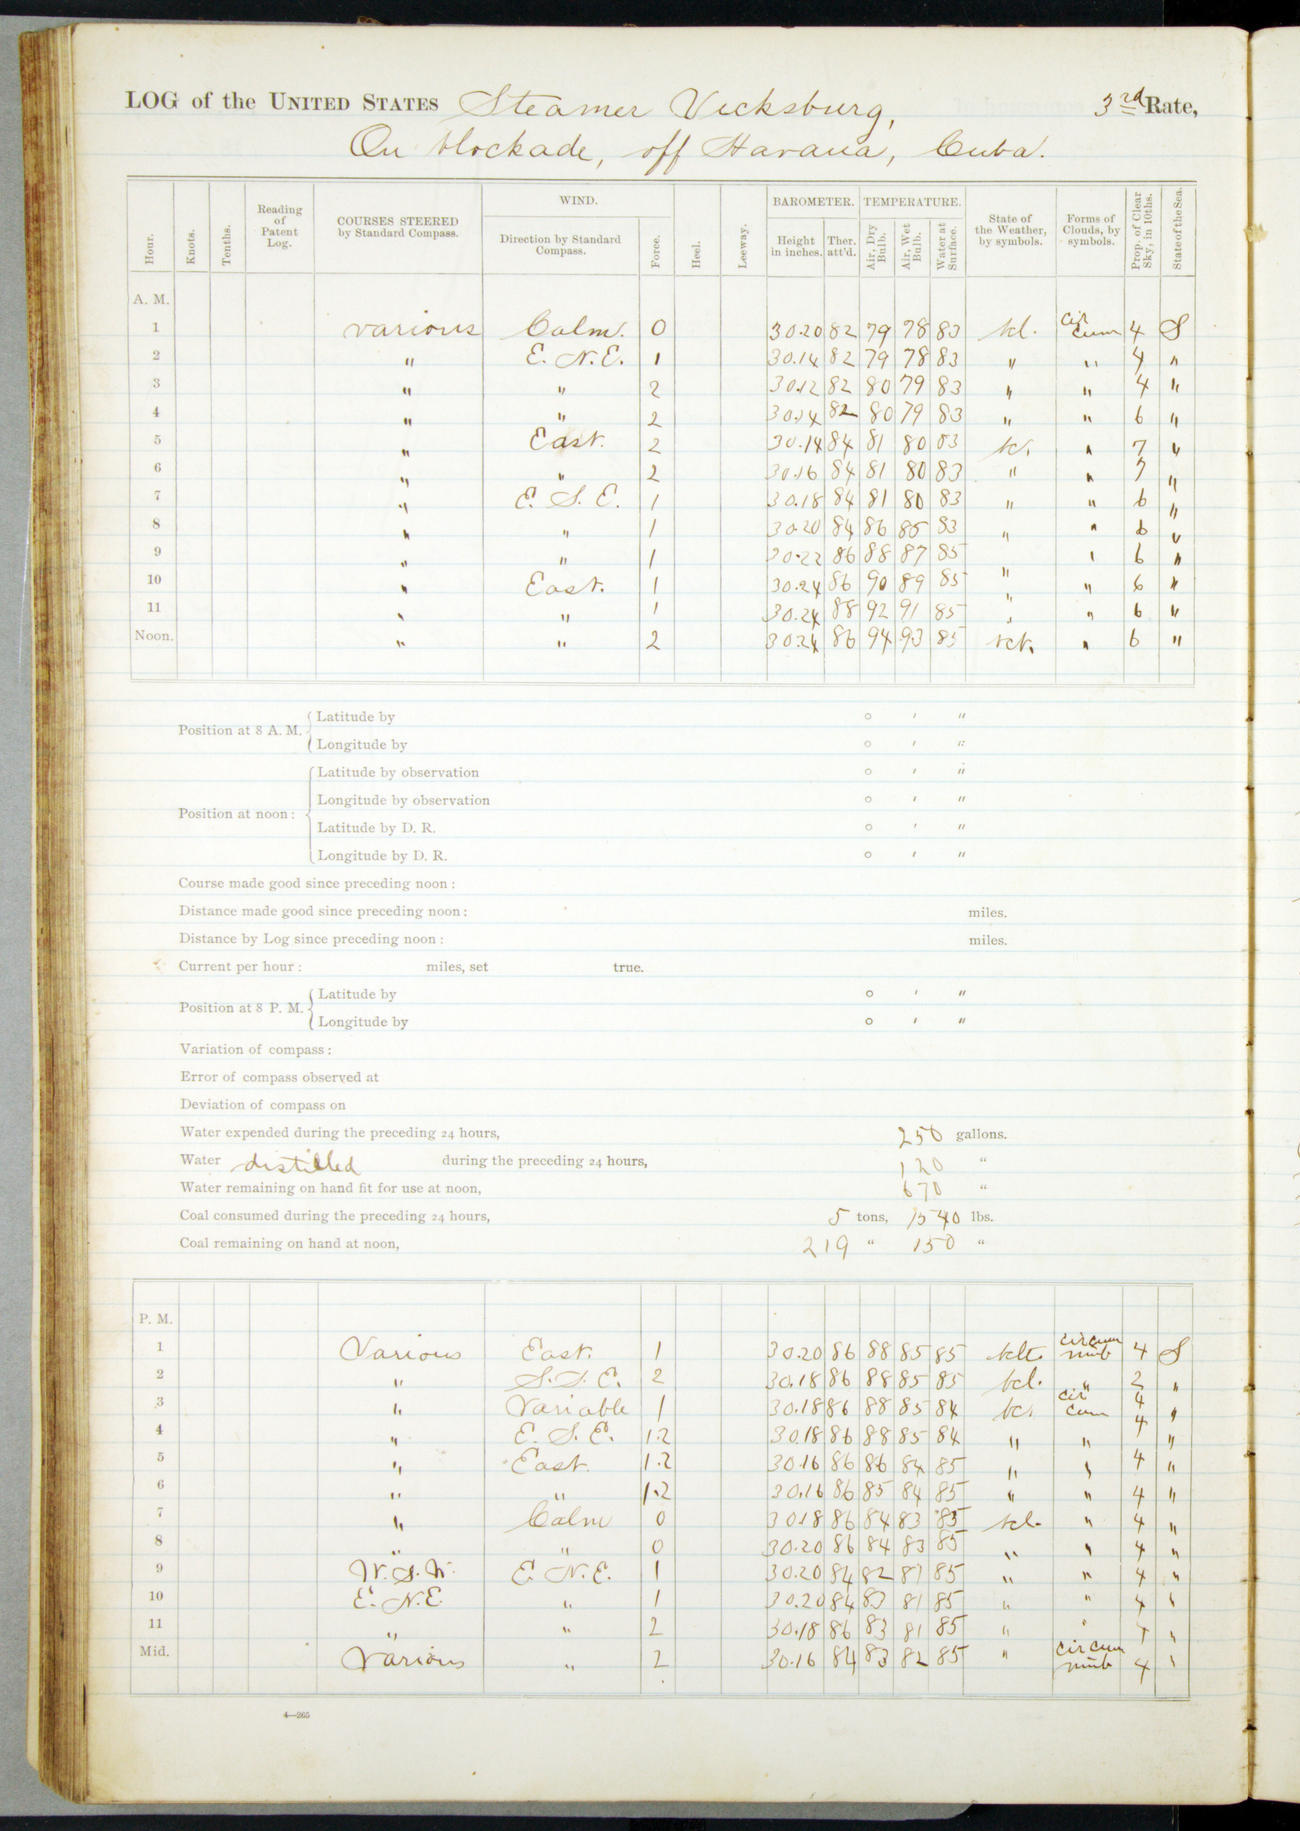 LOG of the UNITED STATES Steamer Vicksburg, 3rd Rate,
On blockade, off Havana, Cuba.
Hour. Knots. Tenths. Reading of Patent Log. COURSES STEERED by Standard Compass. WIND. Direction by Standard Compass. Force. Heel. Leeway. BAROMETER. Height in inches. Ther. att'd. TEMPERATURE. Air, Dry Bulb. Air, Wet Bulb. Water at Surface. State of the Weather, by symbols. Forms of Clouds, by symbols. Prop. of Clear Sky, in 10ths. State of the Sea.
A. M.
1 various Calm. 0 30.20 82 79 78 83 cir cum 4 S
2 " E. N. E. 1 30.14 82 79 78 83 " " 4 "
3 " " 2 30.12 82 80 79 83 " " 4 "
4 " " 2 30.14 82 80 79 83 " " 6 "
5 " East. 2 30.14 84 81 80 83 " 7 "
6 " " 2 30.16 84 81 80 83 " " 7 "
7 " E. S. E. 1 30.18 84 81 80 83 " " 6 "
8 " " 1 30.20 84 86 85 83 " " 6 "
9 " " 1 30.22 86 88 87 85 " " 6 "
10 " East. 1 30.24 86 90 89 85 " " 6 "
11 " " 1 30.24 88 92 91 85 " " 6 "
Noon. " " 2 30.24 86 94 93 85 " 6 "
Position at 8 A. M. Latitude by ° ' "
Longitude by ° ' "
Position at noon: Latitude by observation ° ' "
Longitude by observation ° ' "
Latitude by D. R. ° ' "
Longitude by D. R. ° ' "
Course made good since preceding noon:
Distance made good since preceding noon: miles.
Distance by Log since preceding noon: miles.
Current per hour: miles, set true.
Position at 8 P. M. Latitude by ° ' "
Longitude by ° ' "
Variation of compass:
Error of compass observed at
Deviation of compass on
Water expended during the preceding 24 hours, 250 gallons.
Water distilled during the preceding 24 hours, 120 "
Water remaining on hand fit for use at noon, 670 "
Coal consumed during the preceding 24 hours, 5 tons, 1540 lbs.
Coal remaining on hand at noon, 219 " 150 "
P. M.
1 Various East. 1 30.20 86 88 85 85 cir cum nimb 4 S
2 " S. S. E. 2 30.18 86 88 85 85 bcl. " 2 "
3 " Variable 1 30.18 86 88 85 84 bc. cir cum 4 "
4 " E. S. E. 1.2 30.18 86 88 85 84 " " 4 "
5 " East 1.2 30.16 86 86 84 85 " " 4 "
6 " " 1.2 30.16 86 85 84 85 " " 4 "
7 " Calm 0 30.18 86 84 83 85 " 4 "
8 " " 0 30.20 86 84 83 85 " " 4 "
9 W. S. W. E. N. E. 1 30.20 84 82 81 85 " " 4 "
10 E. N. E. " 1 30.20 84 83 81 85 " " 4 "
11 " " 2 30.18 86 83 81 85 " " "
Mid. Various " 2 30.16 84 83 82 85 " cir cum nimb 4 "
4—265